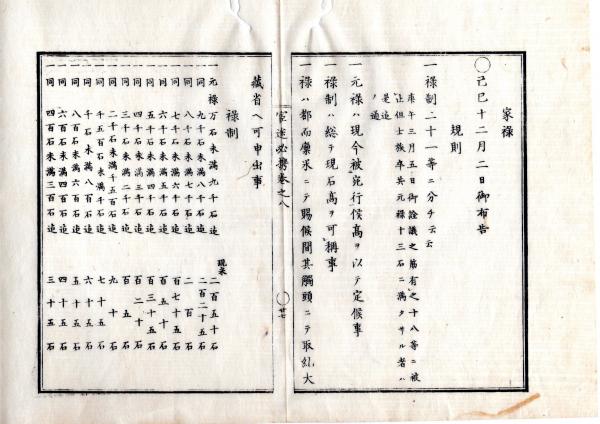 家祿
○己巳十二月二日御布告
規則
一祿制二十一等ニ分チ云云
庚午三月五日御詮議之筋有之十八等ニ被
止但士族卒共元祿十三石ニ満タサル者ハ
是迠
ノ通
一元祿ハ現今被宛行候高ヲ以テ定候事
一祿制ハ総テ現石高ヲ可稱事
一祿ハ都而廩米ニテ賜候間其觸頭ニテ取糺大
官途必携巻之八
○廿七
藏省ヘ可申出事
祿制
現米
一元祿 万石未満九千石迠 二百五十石
一同 九千石未満八千石迠 二百二十五石
一同 八千石未満七千石迠 二百石
一同 七千石未満六千石迠 百七十五石
一同 六千石未満五千石迠 百五十石
一同 五千石未満四千石迠 百三十五石
一同 四千石未満三千石迠 百二十石
一同 三千石未満二千石迠 百五石
一同 二千石未満千五百石迠 九十石
一同 千五百石未満千石迠 七十五石
一同 千石未満八百石迠 六十五石
一同 八百石未満六百石迠 五十五石
一同 六百石未満四百石迠 四十五石
一同 四百石未満三百石迠 三十五石